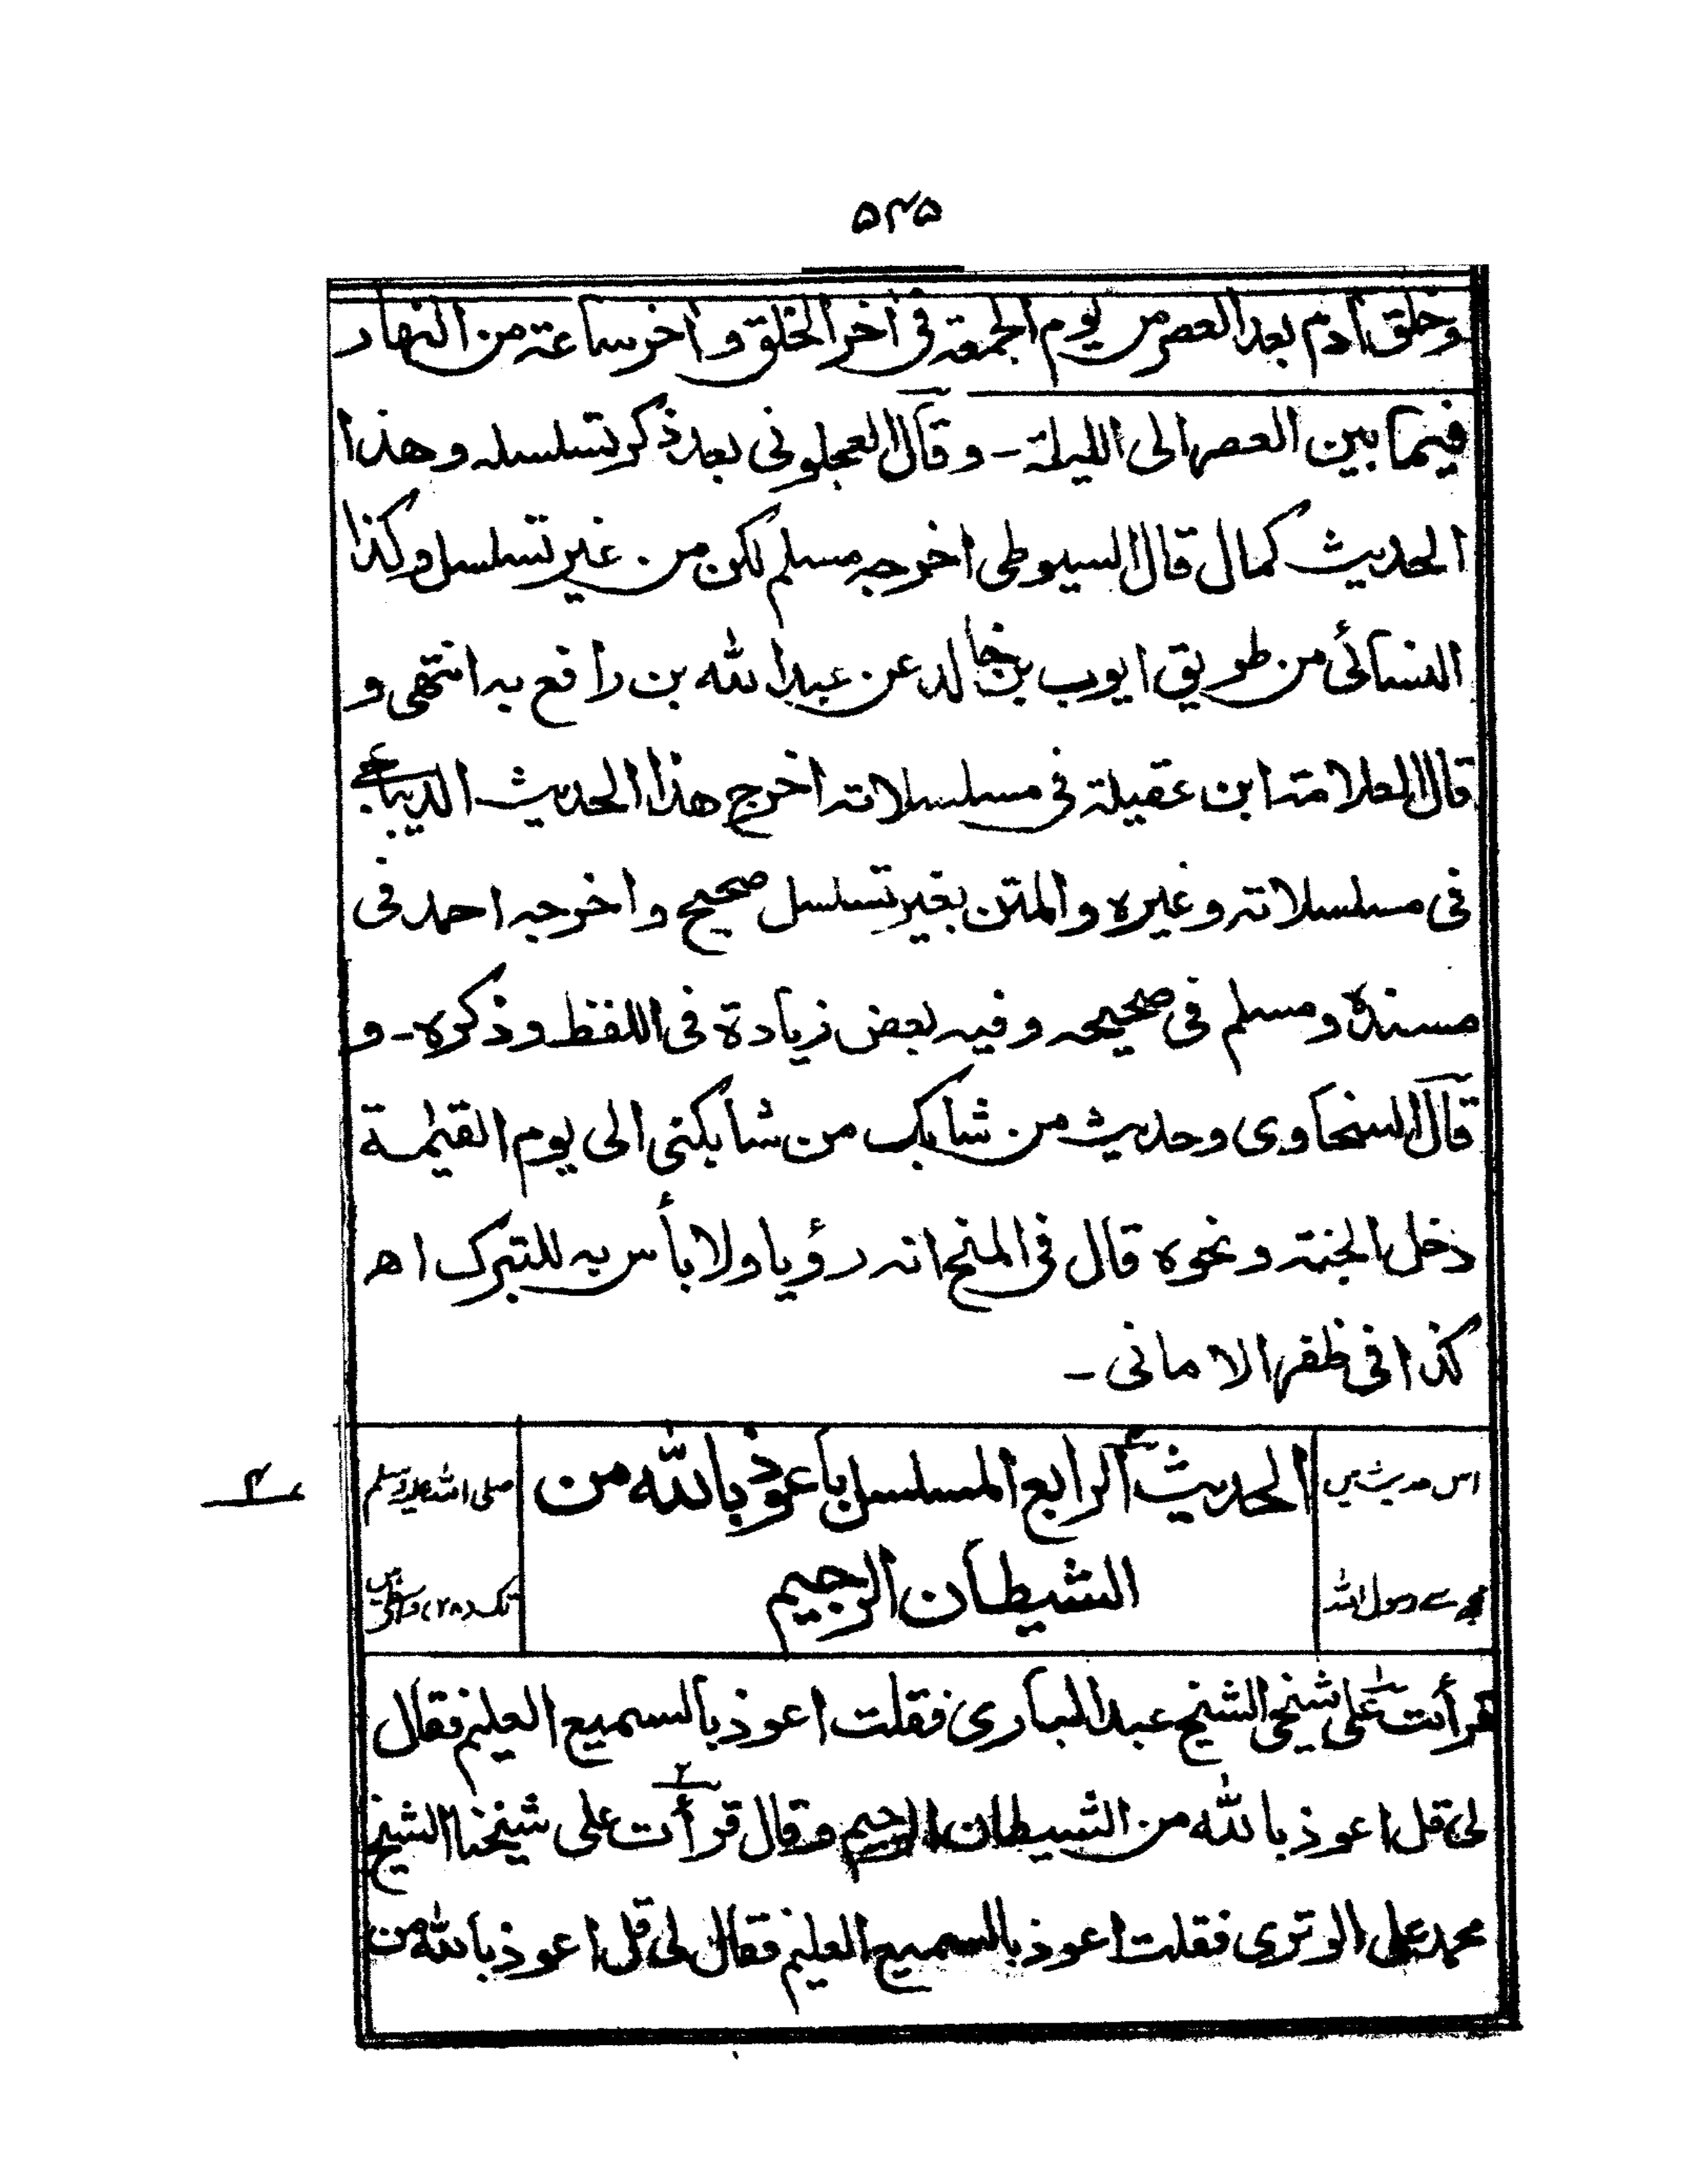 ۵۴۵
وخلق آدم بعد العصر من يوم الجمعة فی آخر الخلق و آخر ساعة من النهار
فیما بین العصر الی اللیلة ۔ و قال العجلونی بعد ذکر تسلسله و هذا
الحدیث کما ل قال السیوطی اخرجه مسلم لکن من غیر تسلسل و کذا
النسائی من طریق ایوب بن خالد عن عبد الله بن رافع به انتهی و
قال العلامة ابن عقیلة فی مسلسلاته اخرج هذا الحدیث الدیباجی
فی مسلسلاته و غیره و المتن بغیر تسلسل صحیح و اخرجه احمد فی
مسنده و مسلم فی صحیحه و فیه بعض زیادة فی اللفظ و ذکره ۔ و
قال السخاوی و حدیث من شابک من شابکنی الی یوم القیٰمة
دخل الجنة و نحوه قال فی المنح انه رؤیا و لا بأس به للتبرک اه
کذا فی ظفر الامانی ۔
الحدیث الرابع المسلسل باعوذ بالله من
الشیطان الرجیم
اس حدیث میں
سے رسول اللہ
صلی اللہ علیہ وسلم
تک (۲۸)
۴
قرأت علی شیخی الشیخ عبد الباری فقلت اعوذ بالسمیع العلیم فقال
لی قل اعوذ بالله من الشیطان الرجیم و قال قرأت علی شیخنا الشیخ
۲
محمد علی الوتری فقلت اعوذ بالسمیع العلیم فقال لی قل اعوذ بالله من